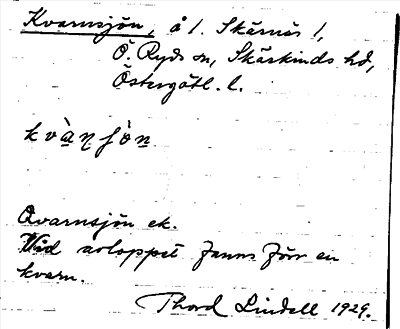 Kvarnsjön, å l. Skärnäs 1,
Ö. Ryds sn, Skärkinds hd,
Östergötl. l.
kvàṇʃòn
Qvarnsjön ek.
Vid avloppet fanns förr en
kvarn.
Thord Lindell 1929.